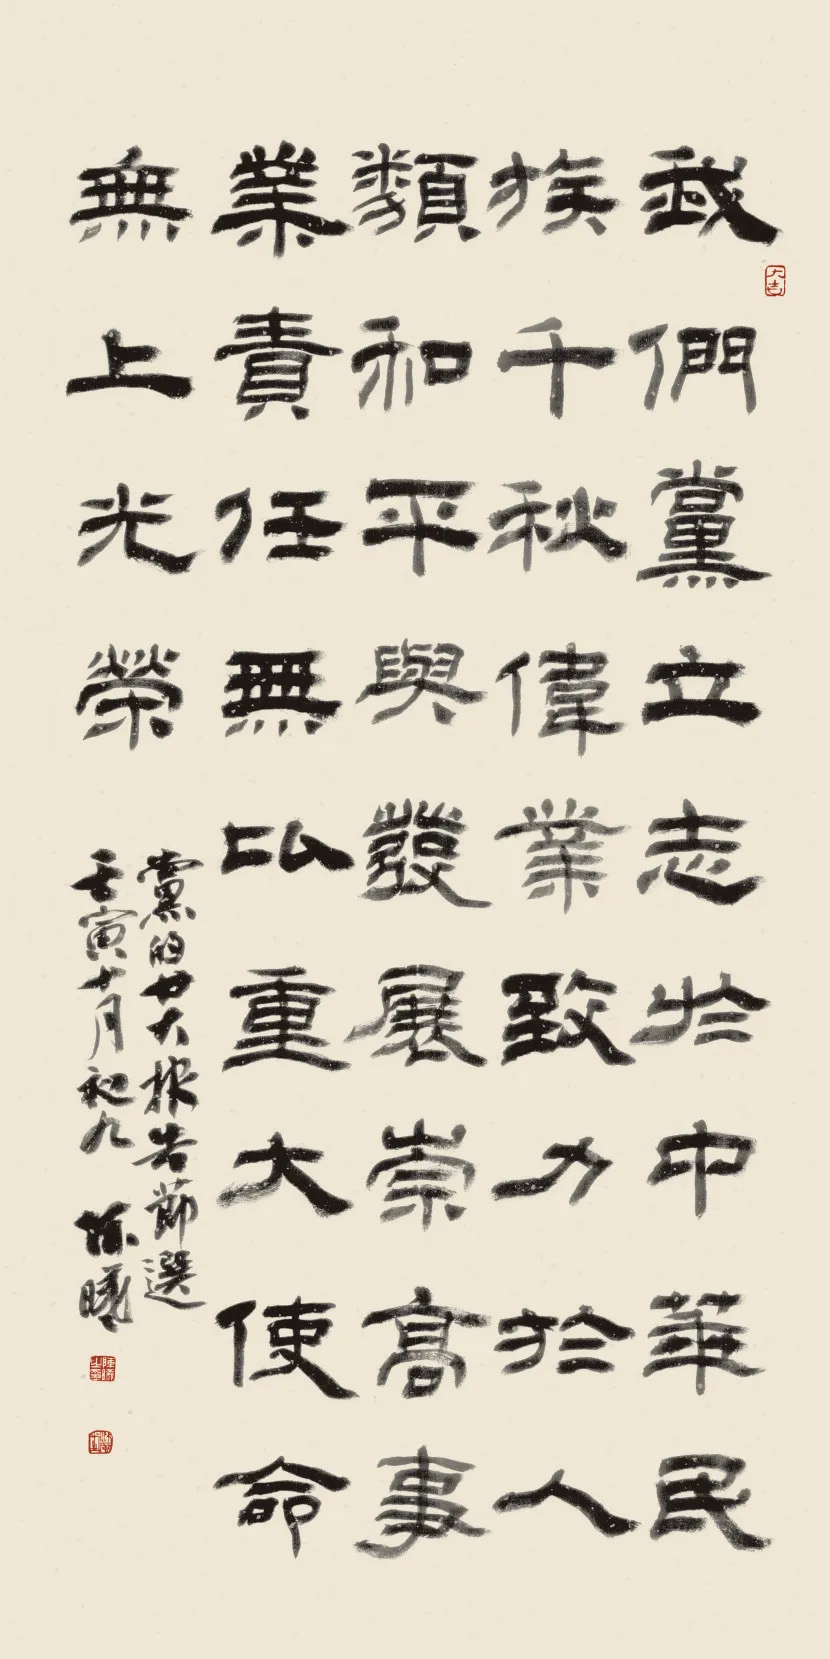 我們黨立志於中華民
族千秋偉業致力於人
類和平與發展崇高事
業責任無比重大使命
無上光榮
黨的廿大報告節選
壬寅十月初九 陳曦